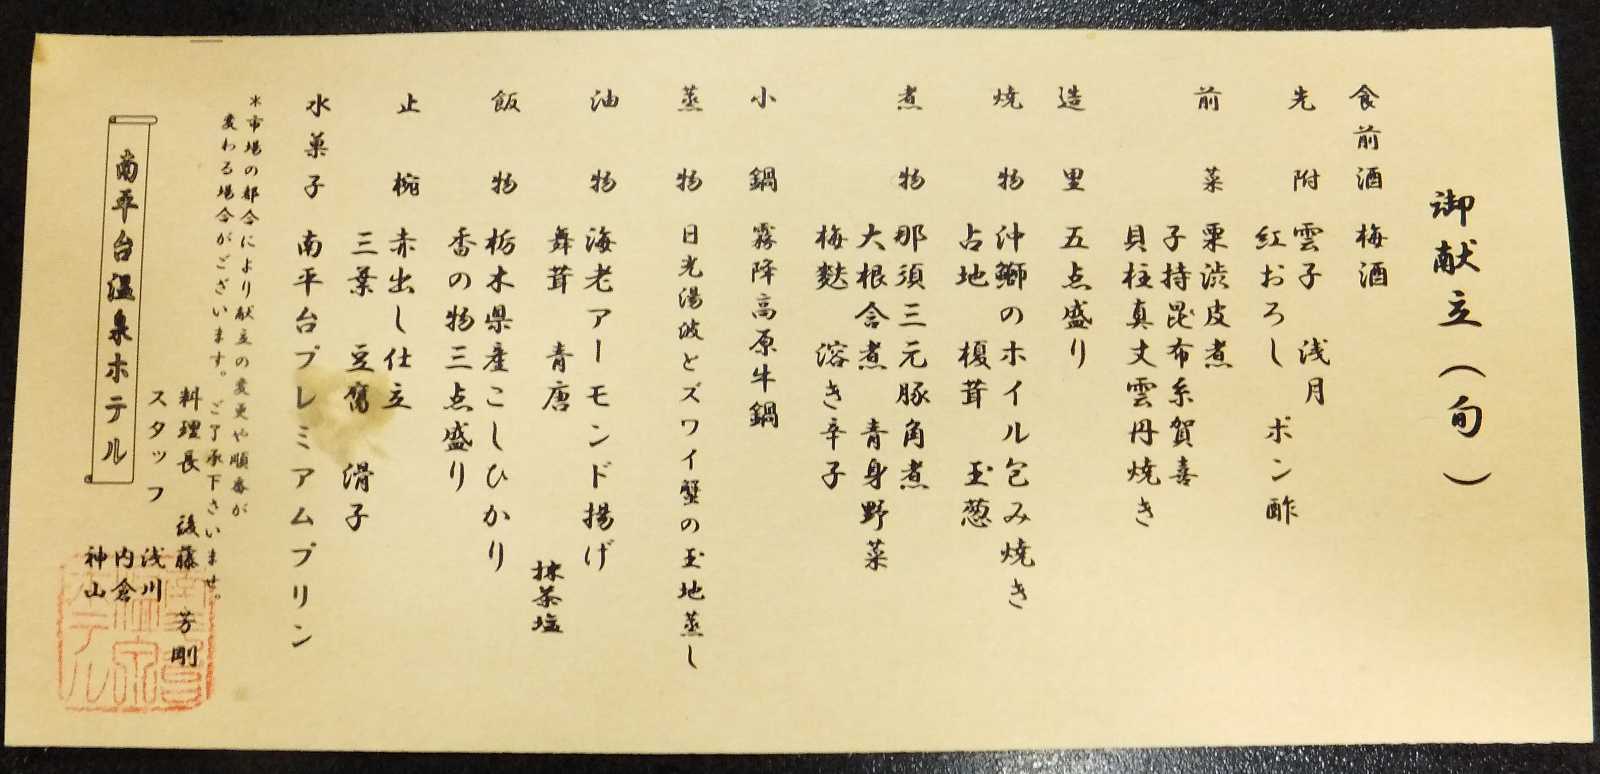 御献立（旬）
食前酒 梅酒
先附 雲子 浅月
紅おろし ポン酢
前菜 栗渋皮煮
子持昆布糸賀喜
貝柱真丈雲丹焼き
造里 五点盛り
焼物 沖鰤のホイル包み焼き
占地 榎茸 玉葱
煮物 那須三元豚角煮
大根含煮 青身野菜
梅麩 溶き辛子
小鍋 霧降高原牛鍋
蒸物 日光湯波とズワイ蟹の玉地蒸し
油物 海老アーモンド揚げ
舞茸 青唐 抹茶塩
飯物 栃木県産こしひかり
香の物三点盛り
止椀 赤出し仕立
三葉 豆腐 滑子
水菓子 南平台プレミアムプリン
＊市場の都合により献立の変更や順番が
変わる場合がございます。ご了承下さいませ。
料理長 後藤 芳剛
スタッフ 浅川
内倉
神山
南平台温泉ホテル